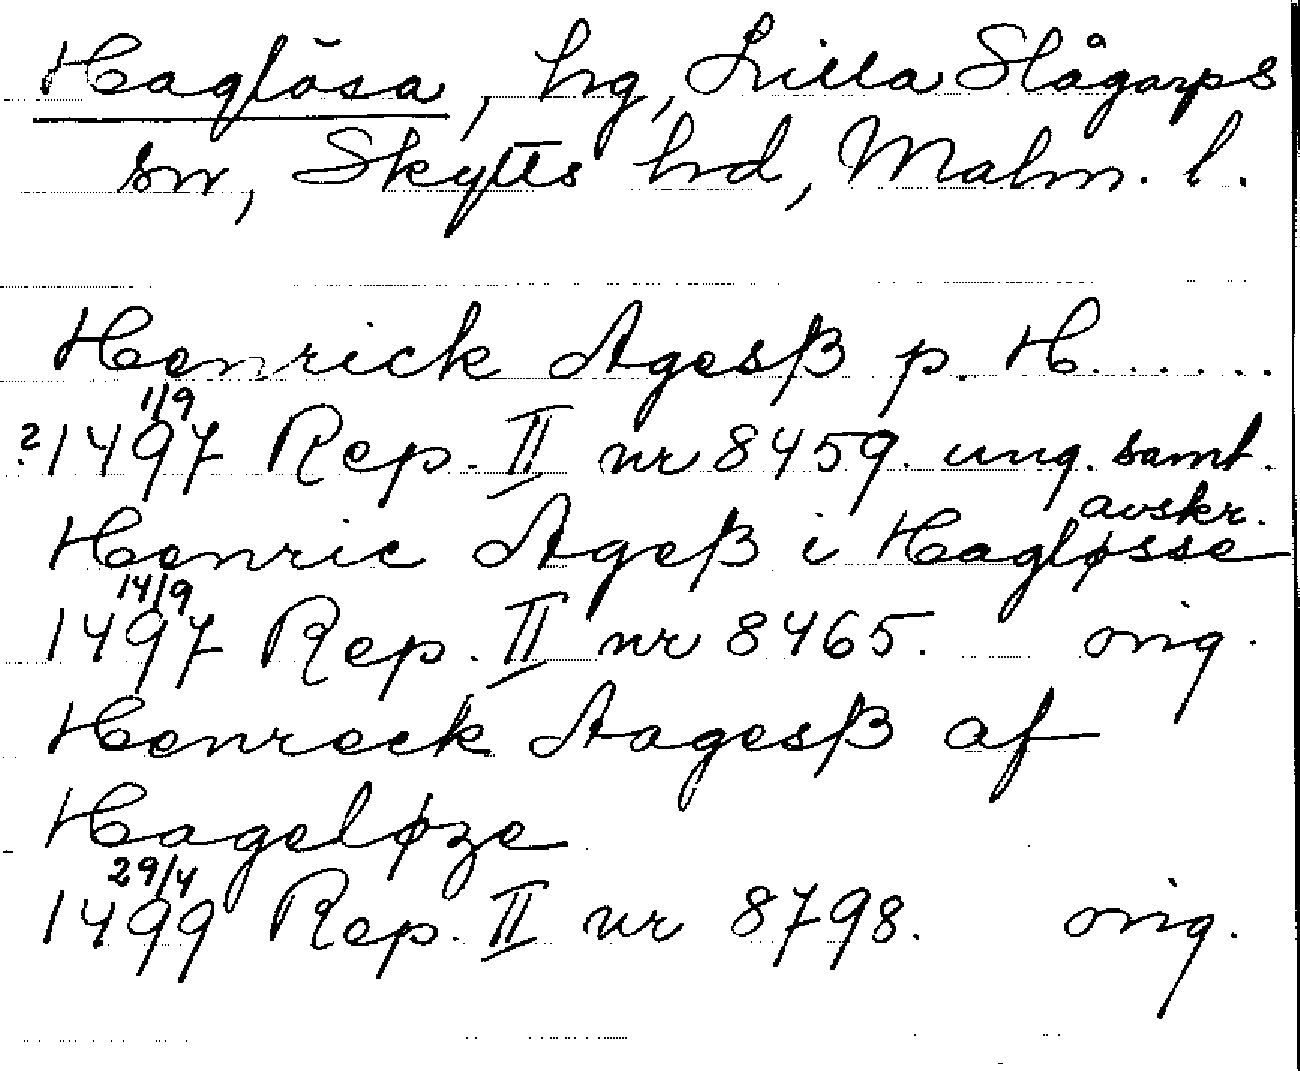 Haglösa, hg, Lilla Slågarps
sn, Skytts hd, Malm. l.
Henrick Agesß p. H......
1/9
?1497 Rep. II nr 8459. ung. samt.
avskr.
Henric Ageß i Hagløsse
14/9
1497 Rep. II nr 8465. orig.
Henreck Aagesß af
Hageløze
29/4
1499 Rep. II nr 8798. orig.